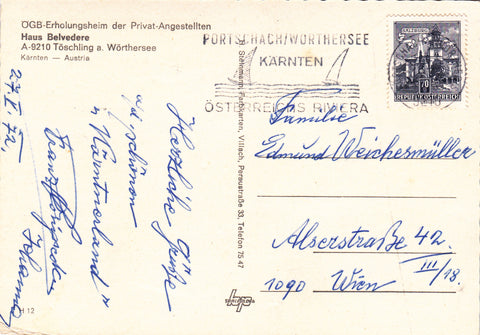 ÖGB-Erholungsheim der Privat-Angestellten
Haus Belvedere
A-9210 Töschling a. Wörthersee
Kärnten – Austria
PÖRTSCHACH/WÖRTHERSEE
KÄRNTEN
ÖSTERREICHS RIVIERA
SALZBURG
70
REPUBLIK ÖSTERREICH
Villach, Peraustraße 33, Telefon 75 47
27.
72,
Herzliche Grüße
aus schönen
"Kärntnerland"
Johanna
Familie
Edmund Weichesmüller
Alserstraße 42.
III/18.
1090 Wien
H 12